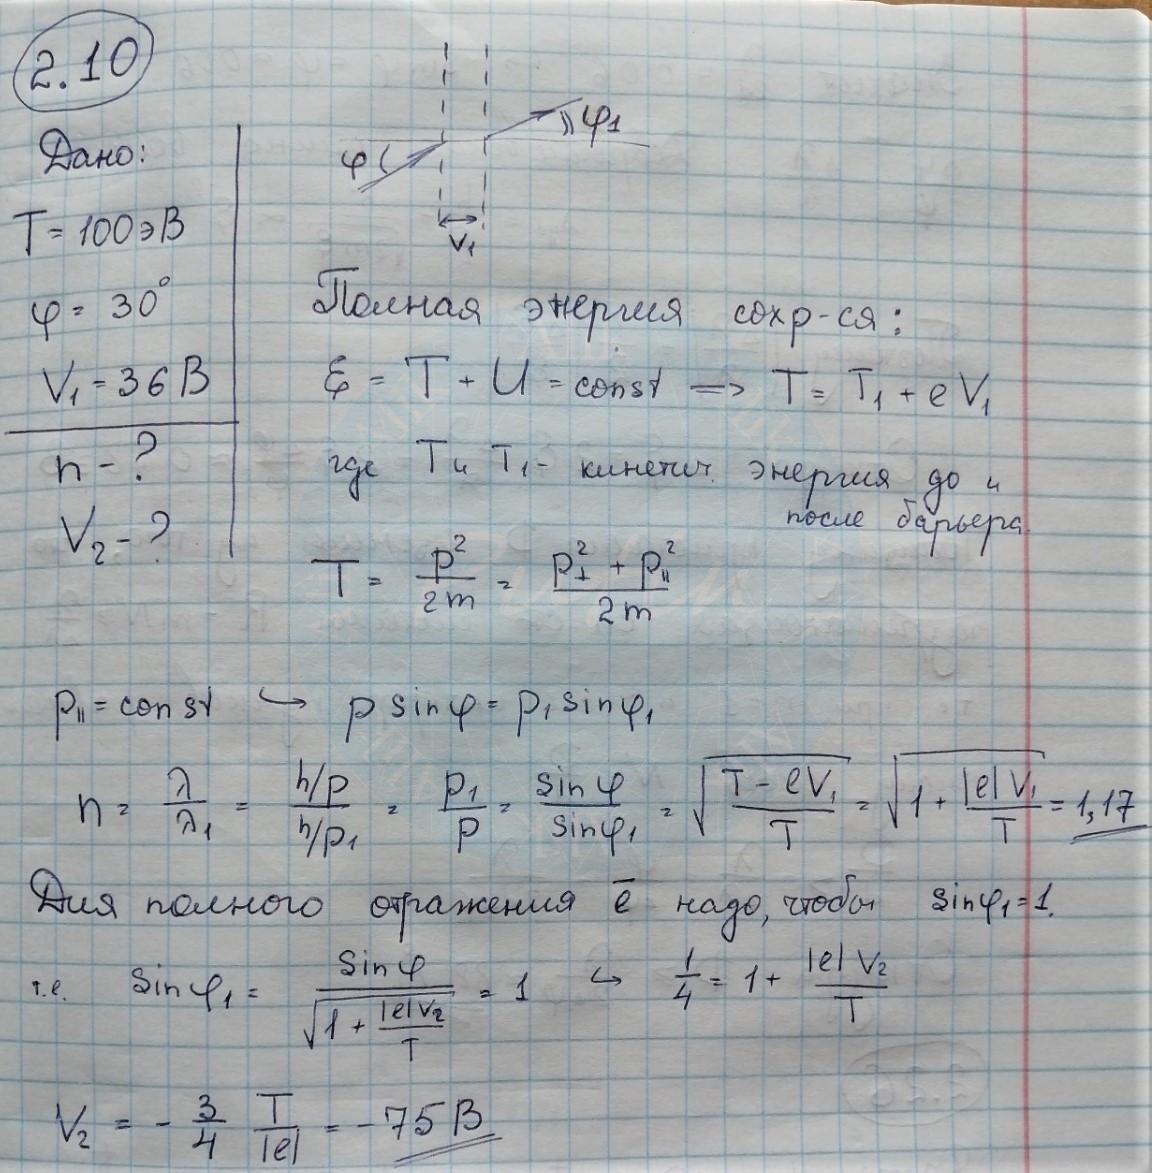 2.10
Дано:
T = 100 эВ
φ = 30°
V₁ = 36 В
n - ?
V₂ - ?
φ
φ₁
V₁
Полная энергия сохр-ся:
ℰ = T + U = const => T = T₁ + eV₁
где T и T₁ - кинетич. энергия до и
после барьера
T = p²/2m = (p⊥² + p∥²)/2m
p∥ = const ↪ p sinφ = p₁ sinφ₁
n = λ/λ₁ = (h/p)/(h/p₁) = p₁/p = sinφ/sinφ₁ = √((T - eV₁)/T) = √(1 + |e|V₁/T) = 1,17
Для полного отражения ē надо, чтобы sinφ₁ = 1.
т.е. sinφ₁ = sinφ/√(1 + |e|V₂/T) = 1 ↪ 1/4 = 1 + |e|V₂/T
V₂ = - 3/4 T/|e| = - 75 В